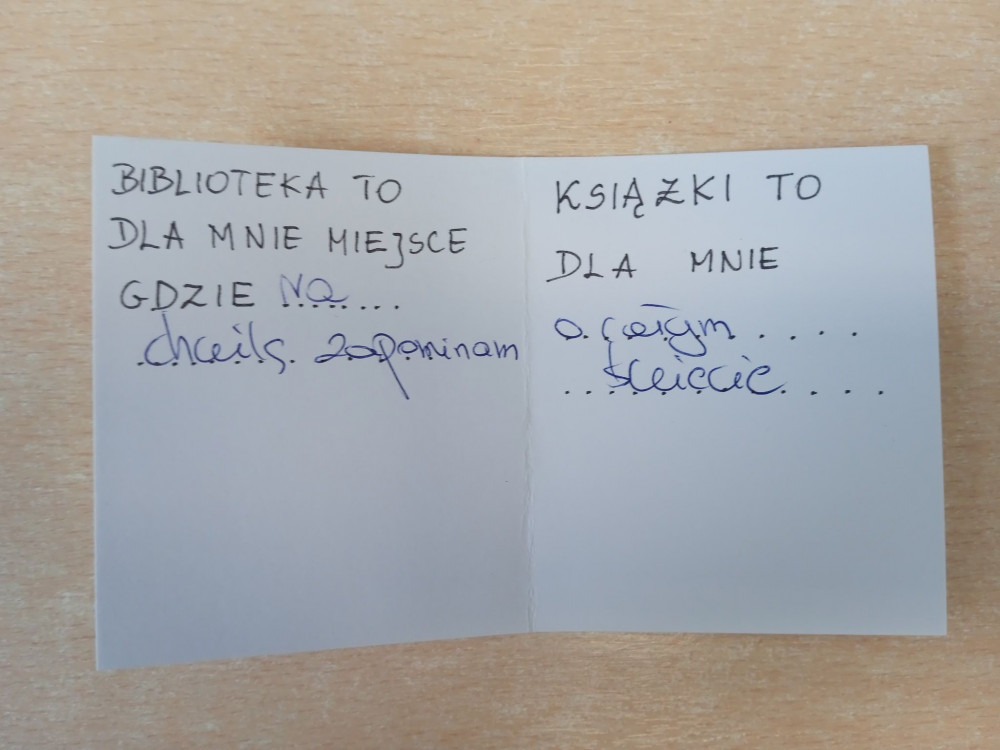 BIBLIOTEKA TO
DLA MNIE MIEJSCE
GDZIE na...
chwilę zapominam
KSIĄŻKI TO
DLA MNIE
o całym....
świecie....